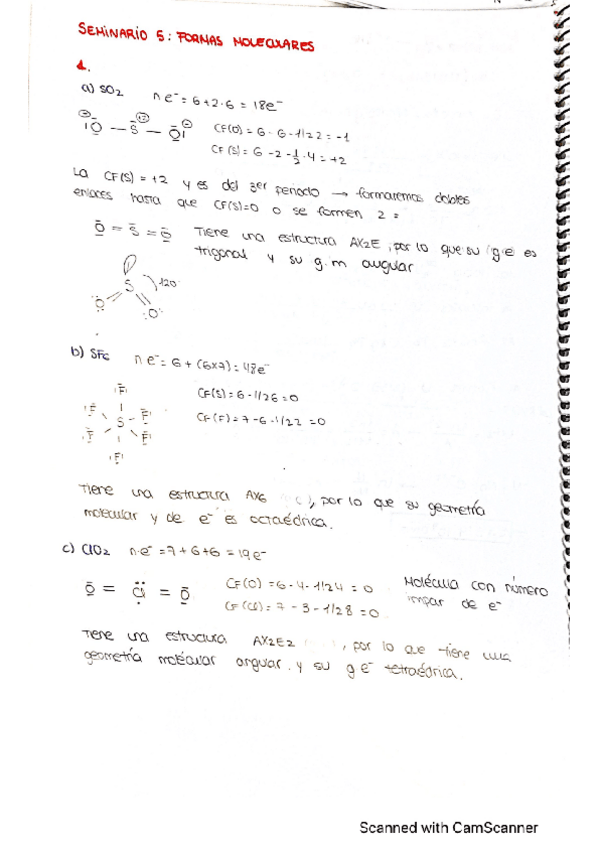 SEMINARIO 5: FORMAS MOLECULARES
1.
a) SO2 n e- = 6+2·6 = 18e-
|O - S - O| CF(O) = 6 - 6 - 1/2 2 = -1
CF(S) = 6 - 2 - 1/2 · 4 = +2
La CF(S) = +2 y es del 3er periodo → formaremos dobles
enlaces hasta que CF(S)=0 o se formen 2 =
O = S = O Tiene una estructura AX2E, por lo que su g e es
trigonal y su g.m angular
S 120
O O
b) SF6 n e- = 6 + (6x7) = 48e-
CF(S) = 6 - 1/2 6 = 0
CF(F) = 7 - 6 - 1/2 2 = 0
|F|
|F F|
S
|F F|
|F|
Tiene una estructura AX6, por lo que su geometría
molecular y de e- es octaédrica.
c) ClO2 n·e- = 7 + 6 + 6 = 19e-
O = Cl = O CF(O) = 6 - 4 - 1/2 4 = 0 Molécula con número
CF(Cl) = 7 - 3 - 1/2 8 = 0 impar de e-
Tiene una estructura AX2E2, por lo que tiene una
geometría molécular angular y su g e- tetraédrica.
Scanned with CamScanner